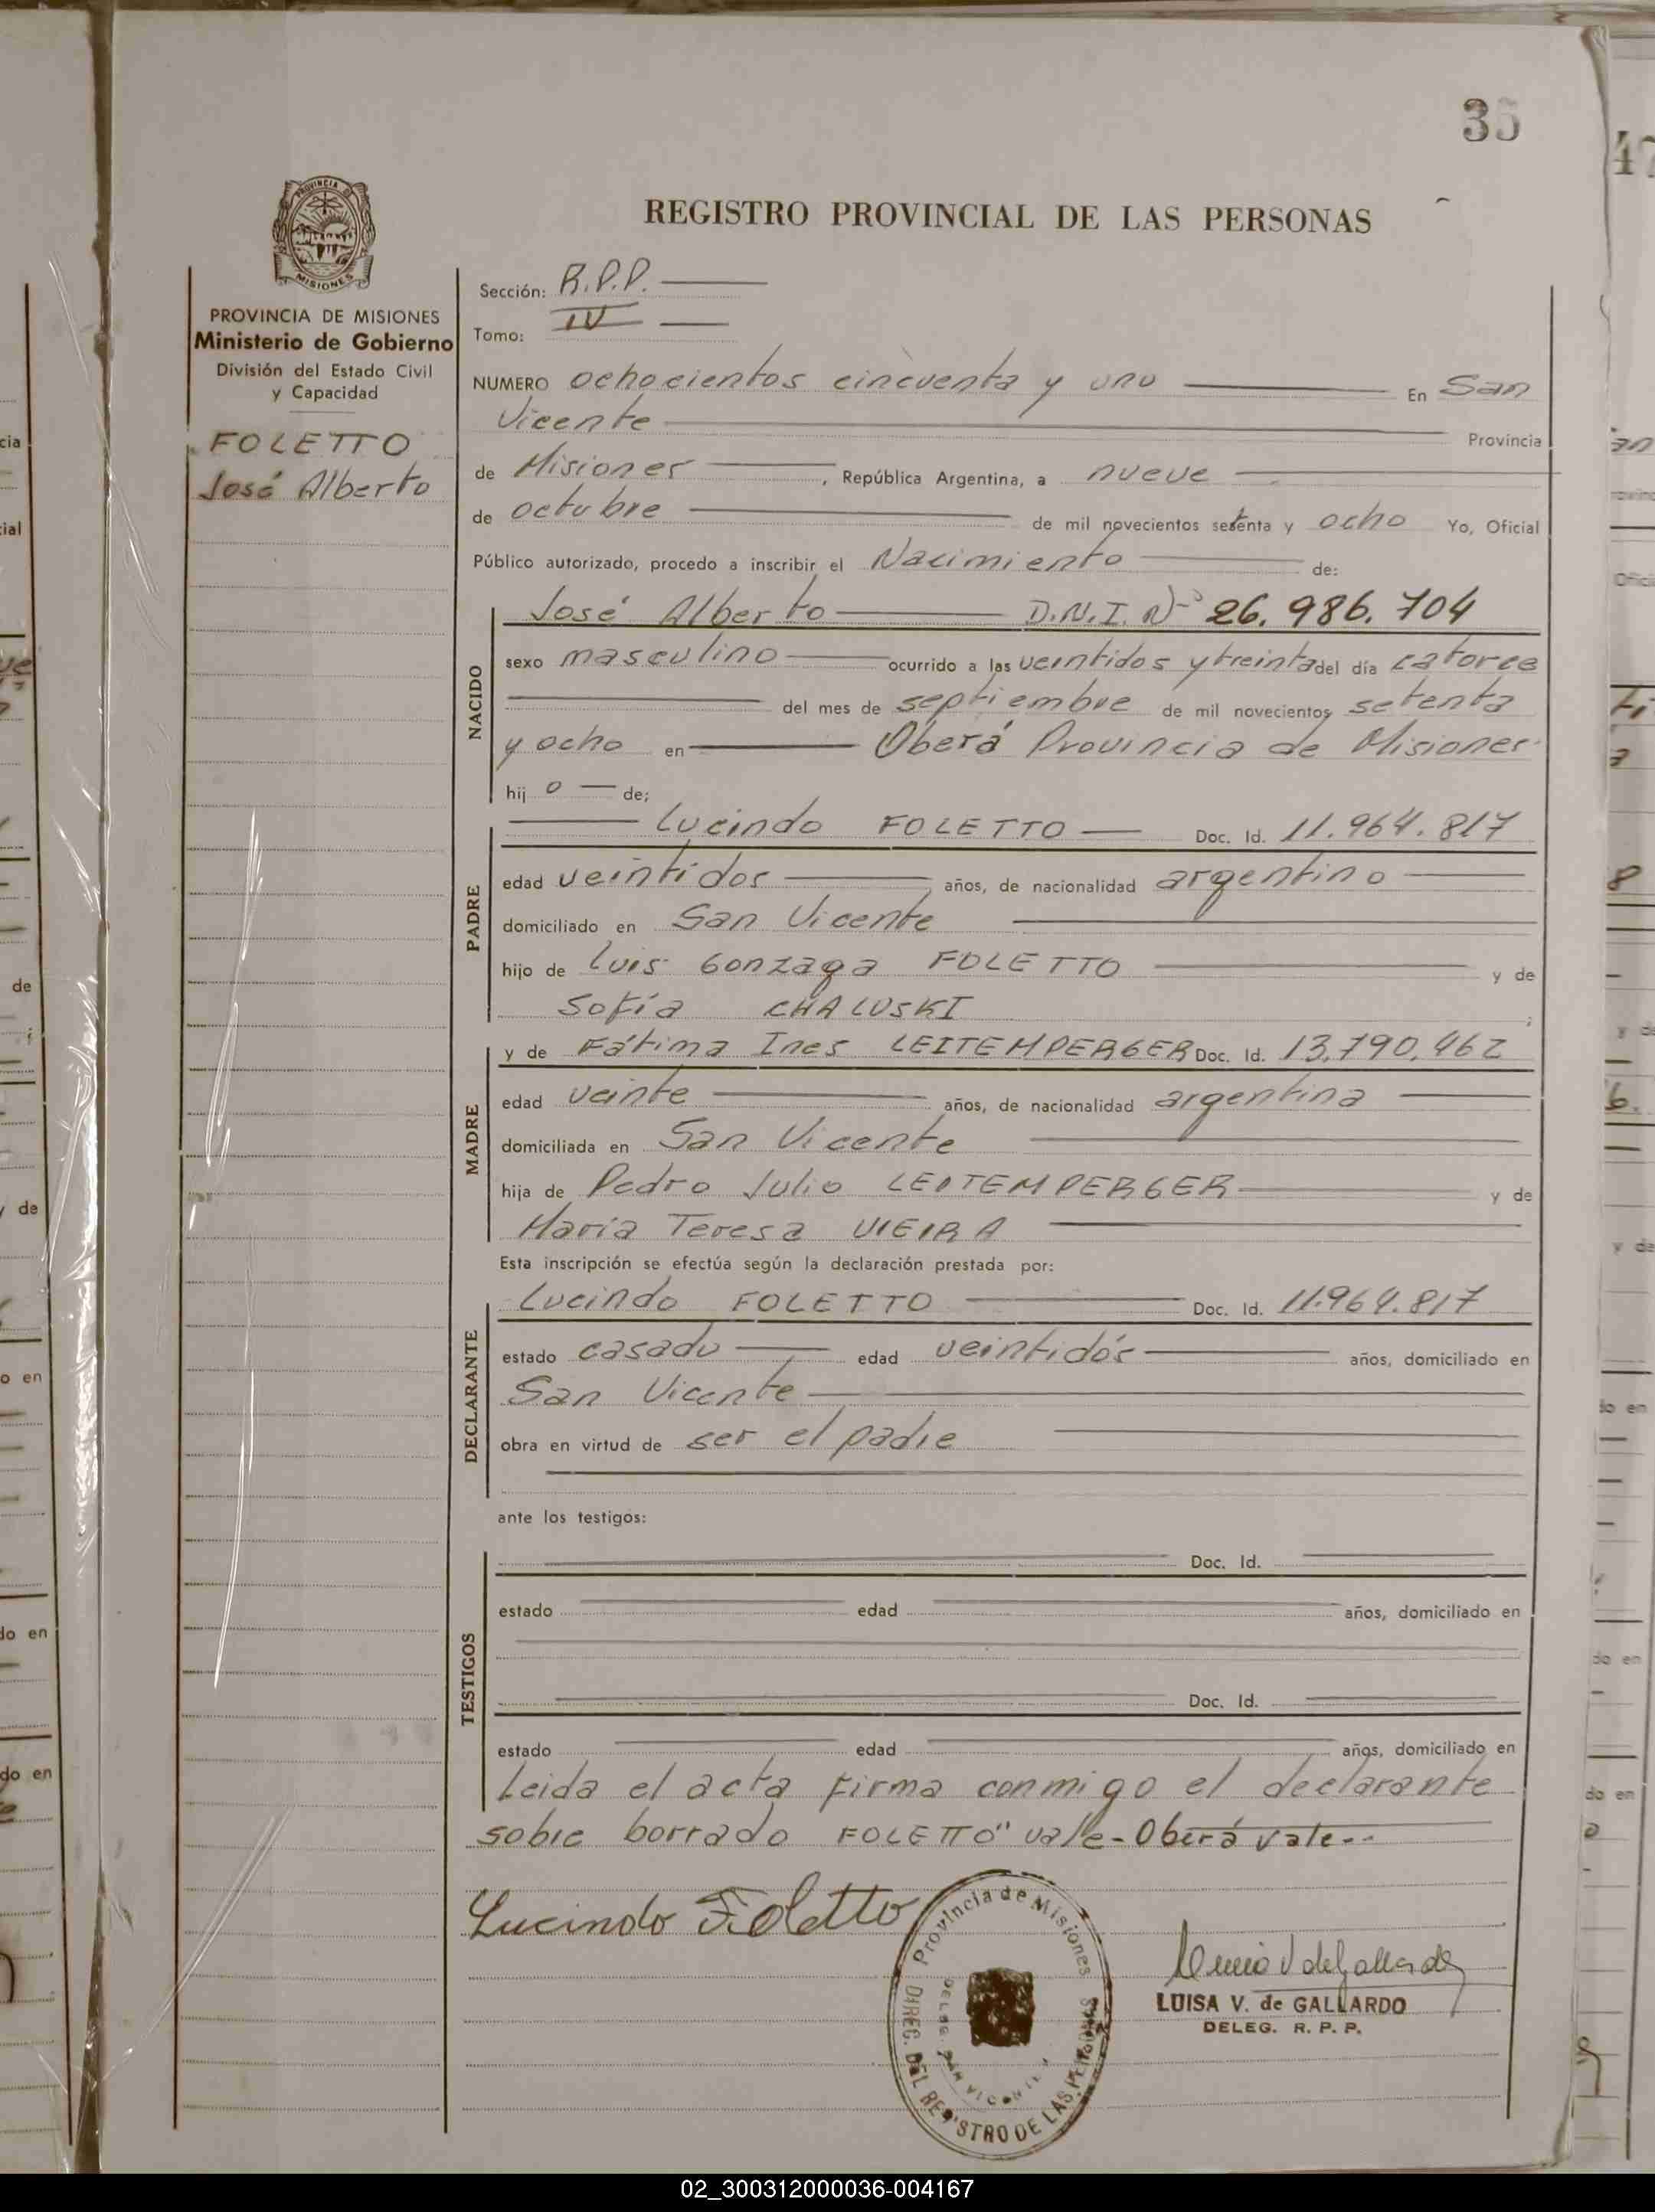 35
REGISTRO PROVINCIAL DE LAS PERSONAS
PROVINCIA DE MISIONES
MISIONES
PROVINCIA DE MISIONES
Ministerio de Gobierno
División del Estado Civil
y Capacidad
FOLETTO
José Alberto
Sección: R.P.P.
Tomo: IV
NUMERO ochocientos cincuenta y uno En San
Vicente Provincia
de Misiones, República Argentina, a nueve
de octubre de mil novecientos setenta y ocho Yo, Oficial
Público autorizado, procedo a inscribir el Nacimiento de:
NACIDO
José Alberto D.N.I. Nº 26.986.704
sexo masculino ocurrido a las veintidos y treinta del día catorce
del mes de septiembre de mil novecientos setenta
y ocho en Oberá Provincia de Misiones
hijo de;
PADRE
Lucindo FOLETTO Doc. Id. 11.964.817
edad veintidos años, de nacionalidad argentino
domiciliado en San Vicente
hijo de Luis Gonzaga FOLETTO y de
Sofía CHALUSKI ;
MADRE
y de Fátima Ines LEITEMPERGER Doc. Id. 13.790.462
edad veinte años, de nacionalidad argentina
domiciliada en San Vicente
hija de Pedro Julio LEITEMPERGER y de
Maria Teresa VIEIRA
Esta inscripción se efectúa según la declaración prestada por:
DECLARANTE
Lucindo FOLETTO Doc. Id. 11.964.817
estado casado edad veintidós años, domiciliado en
San Vicente
obra en virtud de ser el padre
ante los testigos:
TESTIGOS
Doc. Id.
estado edad años, domiciliado en
Doc. Id.
estado edad años, domiciliado en
Leida el acta firma conmigo el declarante
sobre borrado FOLETTO" vale-Oberá vale--
Lucindo Foletto
Provincia de Misiones
DIREC. DEL REGISTRO DE LAS PERSONAS
DELEG. SAN VICENTE
LUISA V. de GALLARDO
DELEG. R. P. P.
02_300312000036-004167